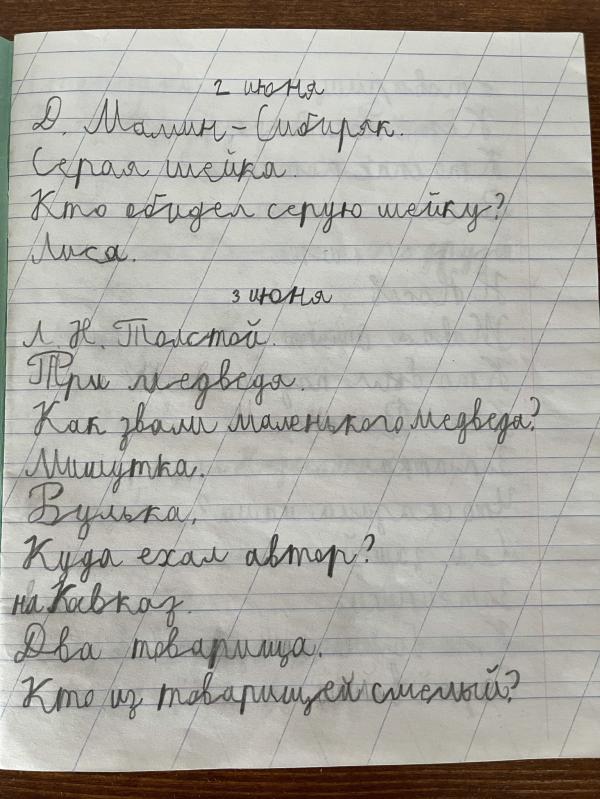 2 июня
Д. Мамин-Сибиряк.
Серая шейка.
Кто обидел серую шейку?
Лиса.
3 июня
Л. Н. Толстой.
Три медведя.
Как звали маленького медведа?
Мишутка.
Булька.
Куда ехал автор?
на Кавказ.
Два товарища.
Кто из товарищей смелый?